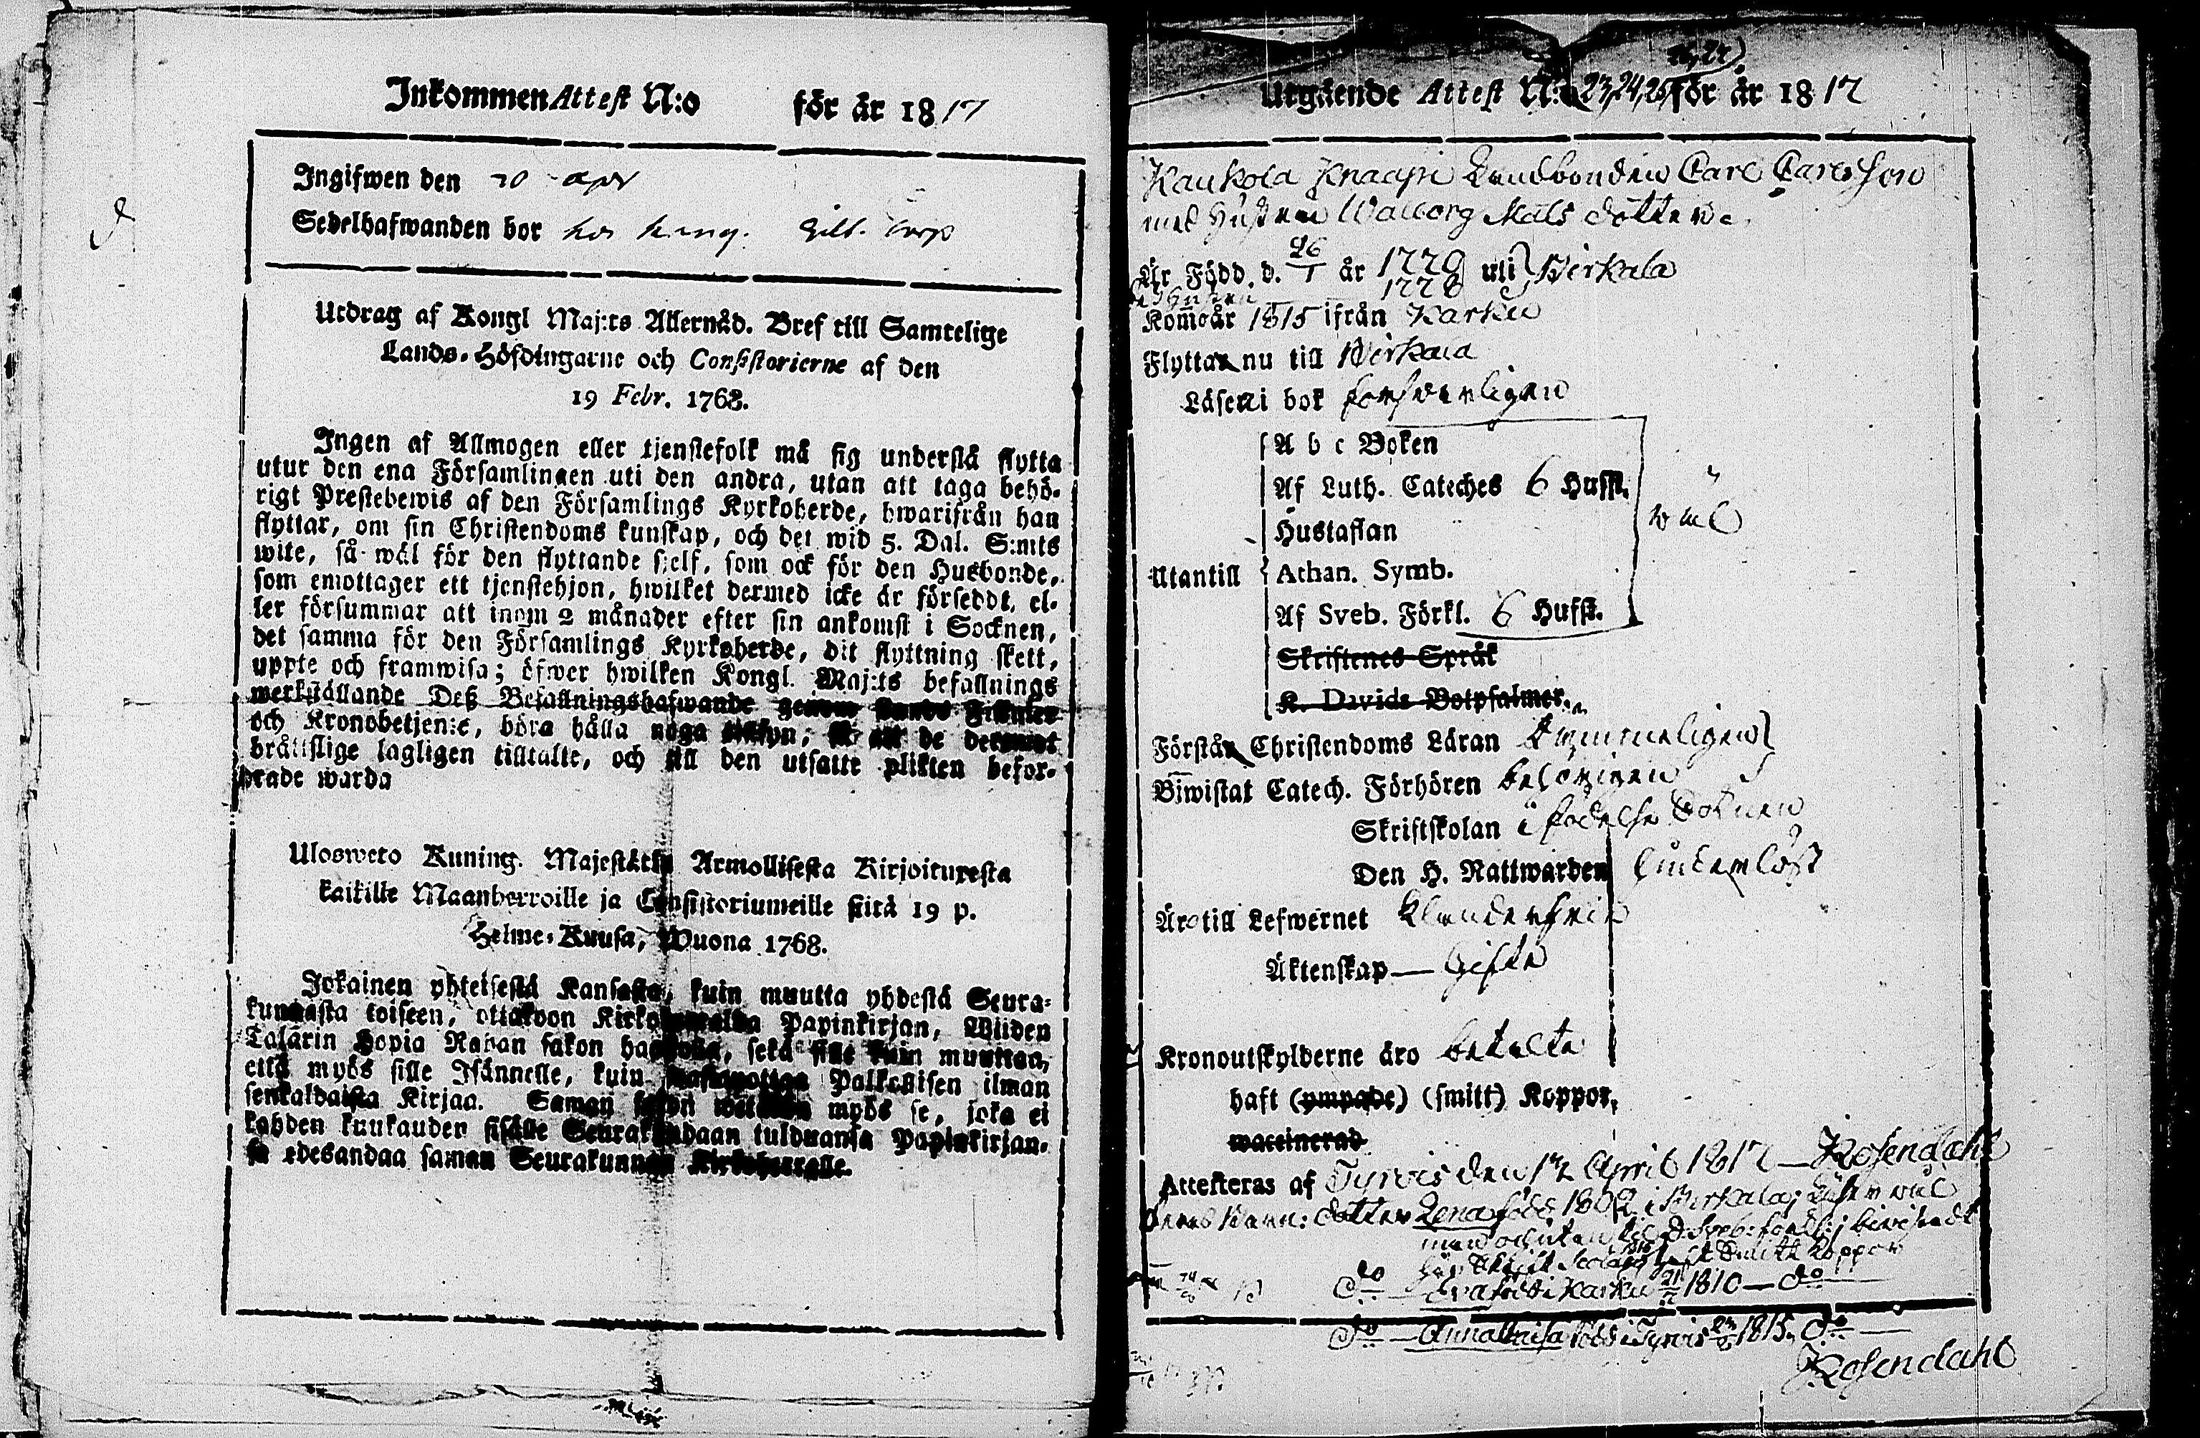 Inkommen Attest N:o för år 1817
Ingifwen den 20 apr
Sedelhafwanden bor hos
Utdrag af Kongl Maj:ts Allernåd. Bref till Samtelige
Lands-Höfdingarne och Consistorierne af den
19 Febr. 1768.
Ingen af Allmogen eller tjenstefolk må sig understå flytta
utur den ena Församlingen uti den andra, utan att taga behö-
rigt Prestebewis af den Församlings Kyrkoherde, hwarifrån han
flyttar, om sin Christendoms kunskap, och det wid 5. Dal. S:mts
wite, så wäl för den flyttande sjelf, som ock för den Husbonde,
som emottager ett tjenstehjon, hwilket dermed icke är försedt, el-
ler försummar att inom 2 månader efter sin ankomst i Socknen,
det samma för den Församlings Kyrkoherde, dit flyttning skett,
uppte och framwisa; öfwer hwilken Kongl. Maj:ts befallnings
werkställande Deß Befallningshafwande
och Kronobetjente, böra hålla noga de deremot
bråttslige lagligen tilltalte, och till den utsatte plikten befor-
drade warda
Ulosweto Kuning. Majestätin Armollisesta Kirjoituxesta
kaikille Maanherroille ja Consistoriumeille siitä 19 p.
Helme-Kuusa, Wuona 1768.
Jokainen yhteisestä Kansasta, kuin muutta yhdestä Seura-
kunnasta toiseen, ottakoon Kirkoherralda Papinkirjan, Wiiden
Talarin Hopia Rahan sakon haastolla, sekä sille kuin muuttaa,
että myös sille Isännelle, kuin Palkollisen ilman
senkaldaista Kirjaa. Saman myös se, joka ei
kahden kuukauden sisälle Seurakundaan tulduansa Papinkirjan-
sa edesandaa saman Seurakunnan Kirkoherralle.
Utgående Attest N:o 23, 24, 25, för år 1817
Kaukola Knaapi Landbonden Carl Carlsson
med Hustru Walborg Mats dotter
Är Född. d. 26/1 år 1770 uti Birkala
1778
Kom år 1815 ifrån Karku
Flyttar nu till Birkala
Läser i bok försvarligen
A b c Boken
Af Luth. Cateches 6 Hufst.
Hustaflan
wäl
Utantill Athan. Symb.
Af Sveb. Förkl. 6 Hufst.
Skriftenes Språk
K. Davids Botpsalmer.
Förstår Christendoms Läran
Biwistat Catech. Förhören behörigen
Skriftskolan i födelse Soknen
Den H. Nattwarden
Äro till Lefwernet klanderfria
Äktenskap — Gifta
Kronoutskylderne äro betalte
haft (ympade) (smitt) Koppor,
waccinerad
Attesteras af Tyrvis den 17 April 1817 — Rosendahl
Deras Barn: dotter Lena född 1802 i Birkala; Läser wäl
Smitt koppor
do Eva född i Karku 1810 — do
do — Anna född i Tyrvis 1815, do —
Rosendahl